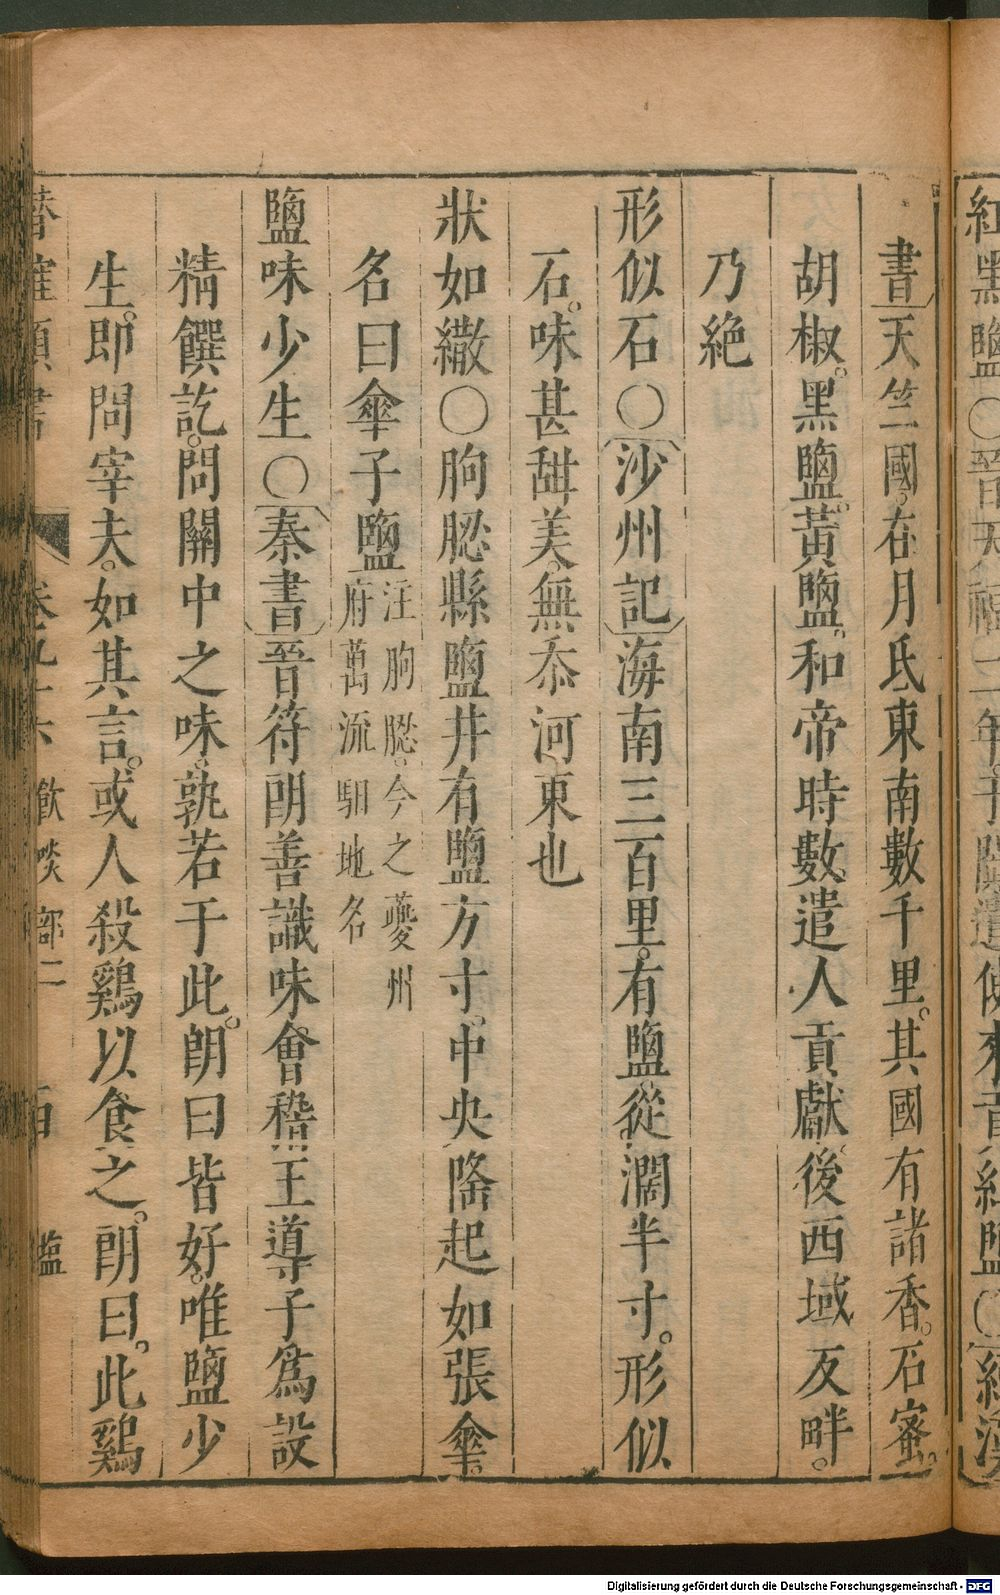 紅黑鹽○晉天福二年于闐遣使來貢紅鹽○續漢
書天竺國在月氏東南數千里。其國有諸香。石蜜。
胡椒。黑鹽。黃鹽。和帝時數遣人貢獻。後西域反畔。
乃絶
形似石○沙州記海南三百里。有鹽從澗半寸。形似
石。味甚甜美。無忝河東也
狀如繖○朐䏰縣鹽井有鹽方寸。中央隆起如張傘。
名曰傘子鹽注朐䏰。今之夔州
府萬流駟地名
鹽味少生○秦書晉符朗善識味。會稽王導子爲設
精饌訖。問關中之味。孰若于此。朗曰皆好。唯鹽少
生。即問宰夫。如其言。或人殺鷄以食之。朗曰。此鷄
卷九十六 飲啖部二 鹽
Digitalisierung gefördert durch die Deutsche Forschungsgemeinschaft - DFG